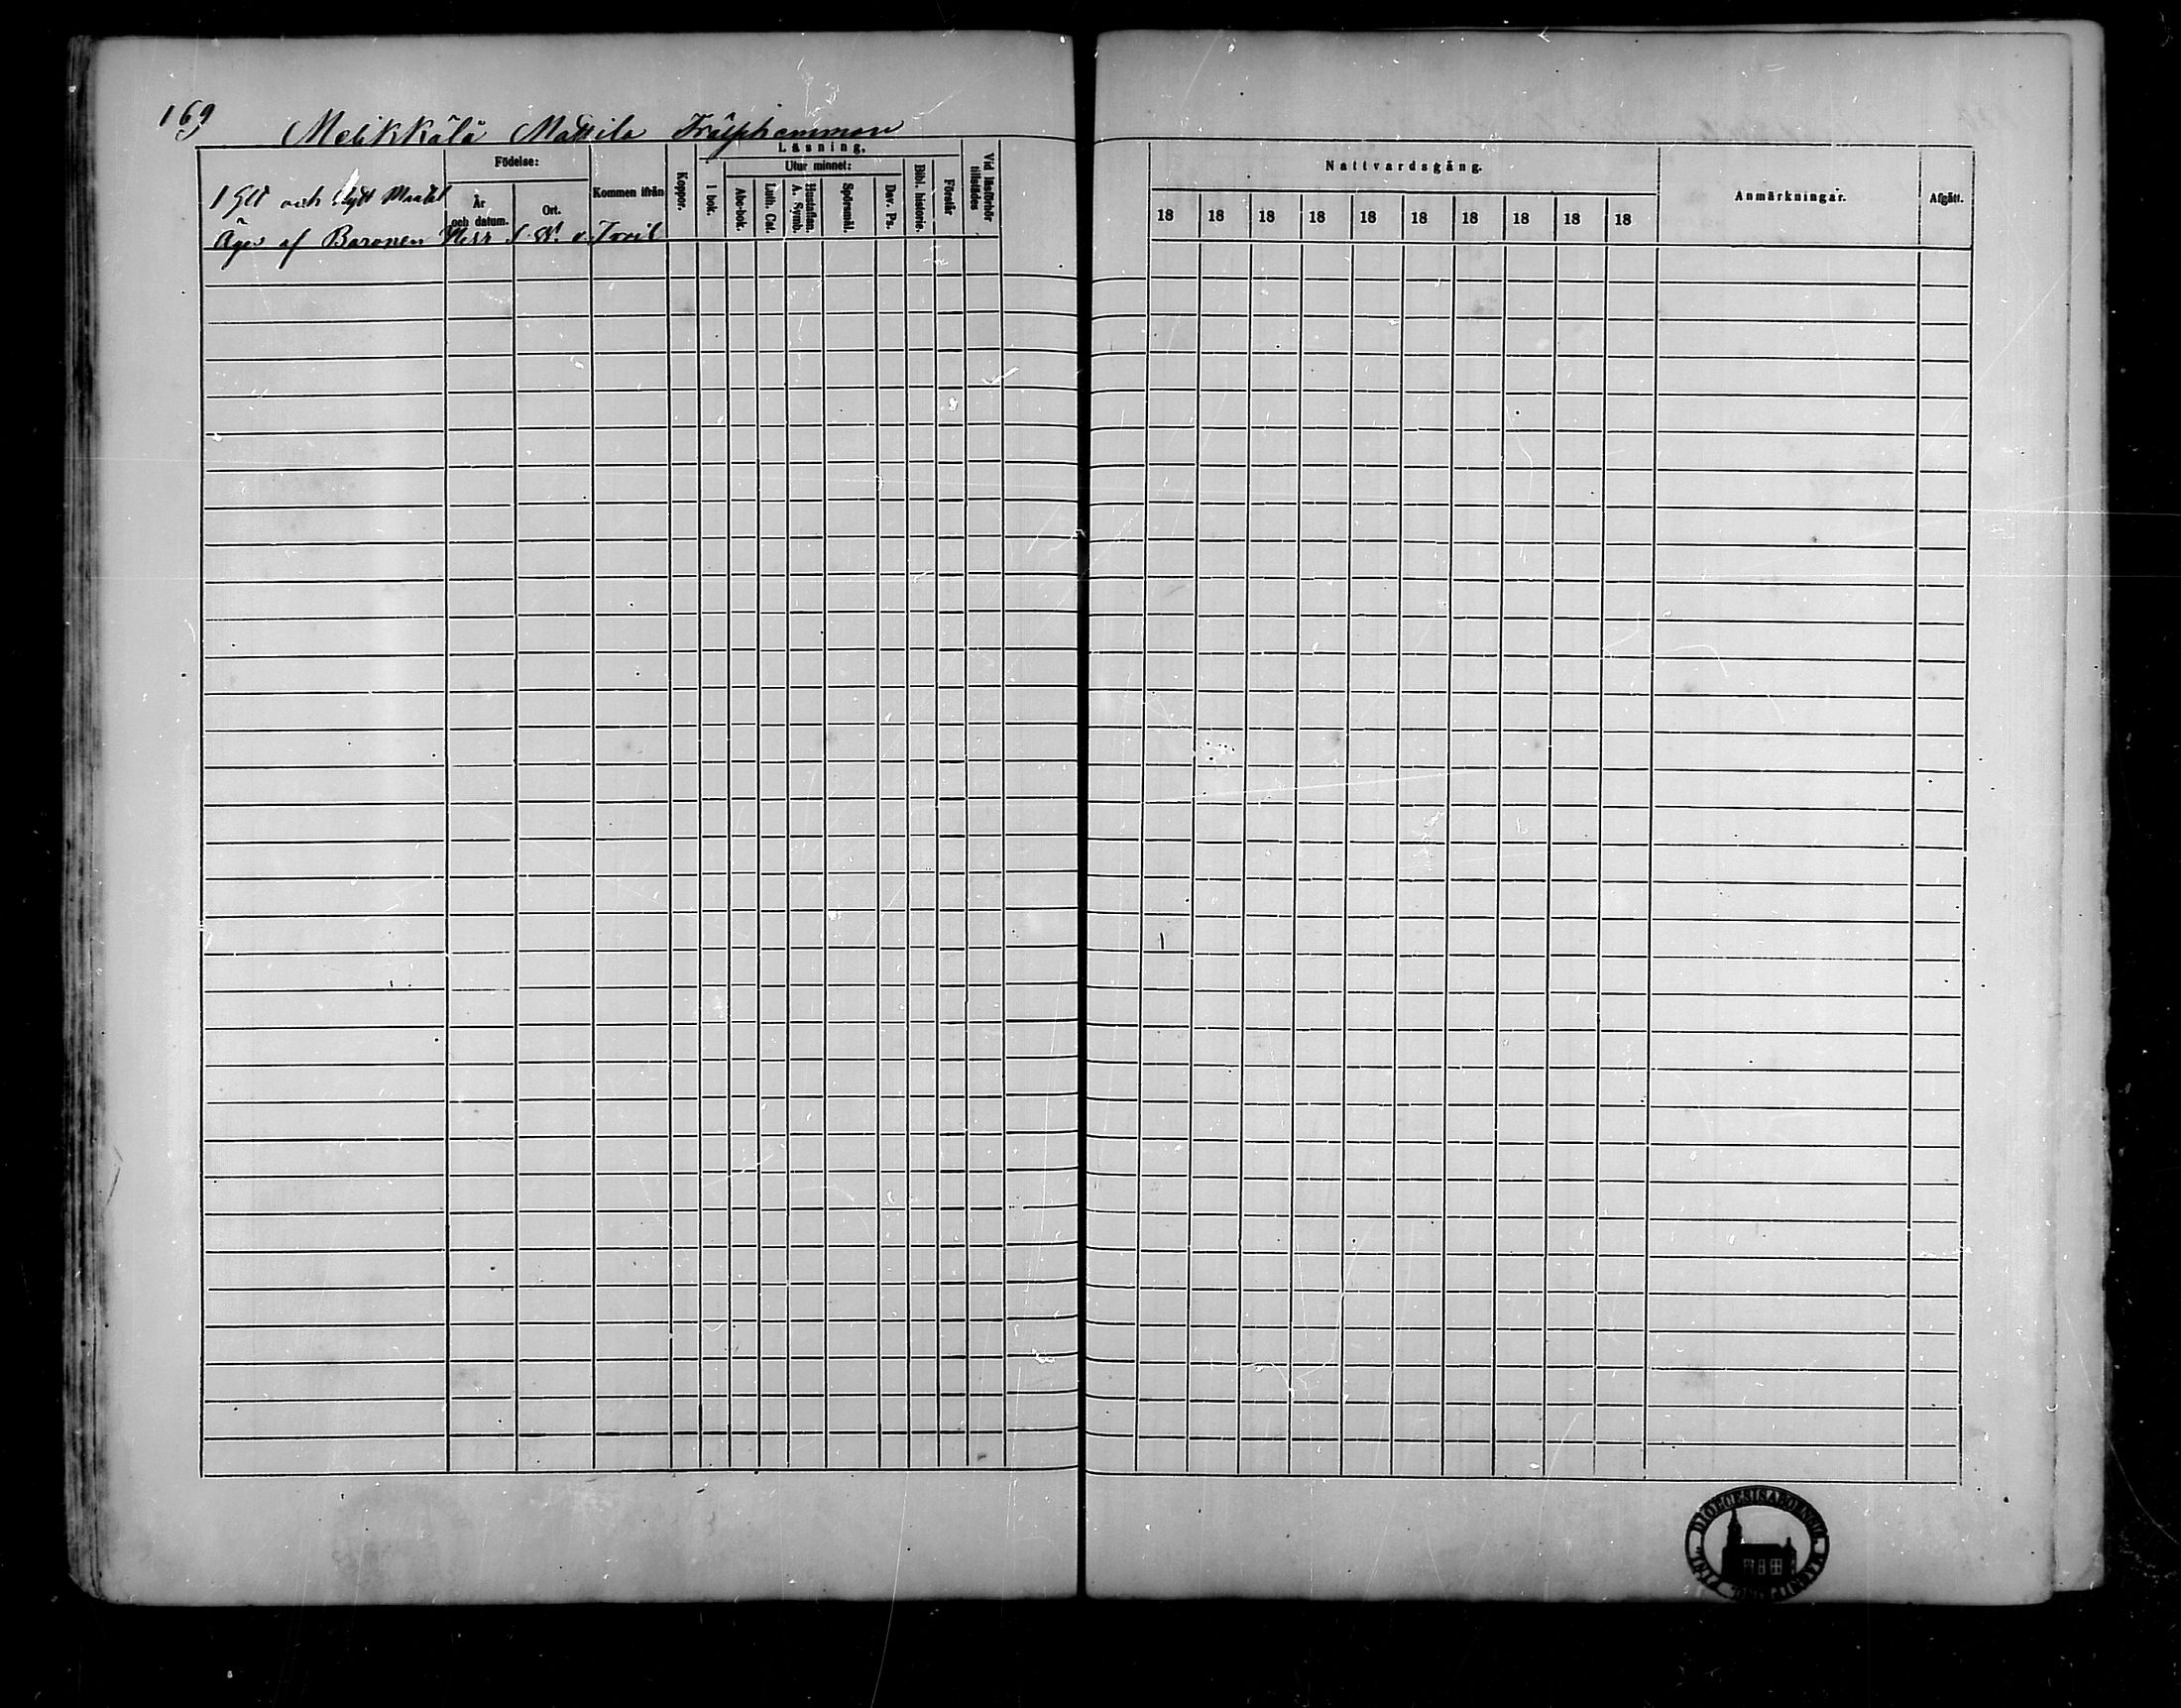 169
Melikkälä Mattila
Läsning.
Födelse:
Kommen ifrån
Koppor.
I bok.
Utur minnet:
Bibl. historie.
Förstår
Vid läsförhör tillstädes
1 och Mantal
År och datum.
Ort.
Abc-bok.
Luth. Cat.
Hustaflan. A. Symb.
Spörsmål.
Dav. Ps.
Äges af Baronen Herr
Nattvardsgång.
Anmärkningar.
Afgått.
18 18 18 18 18 18 18 18 18 18